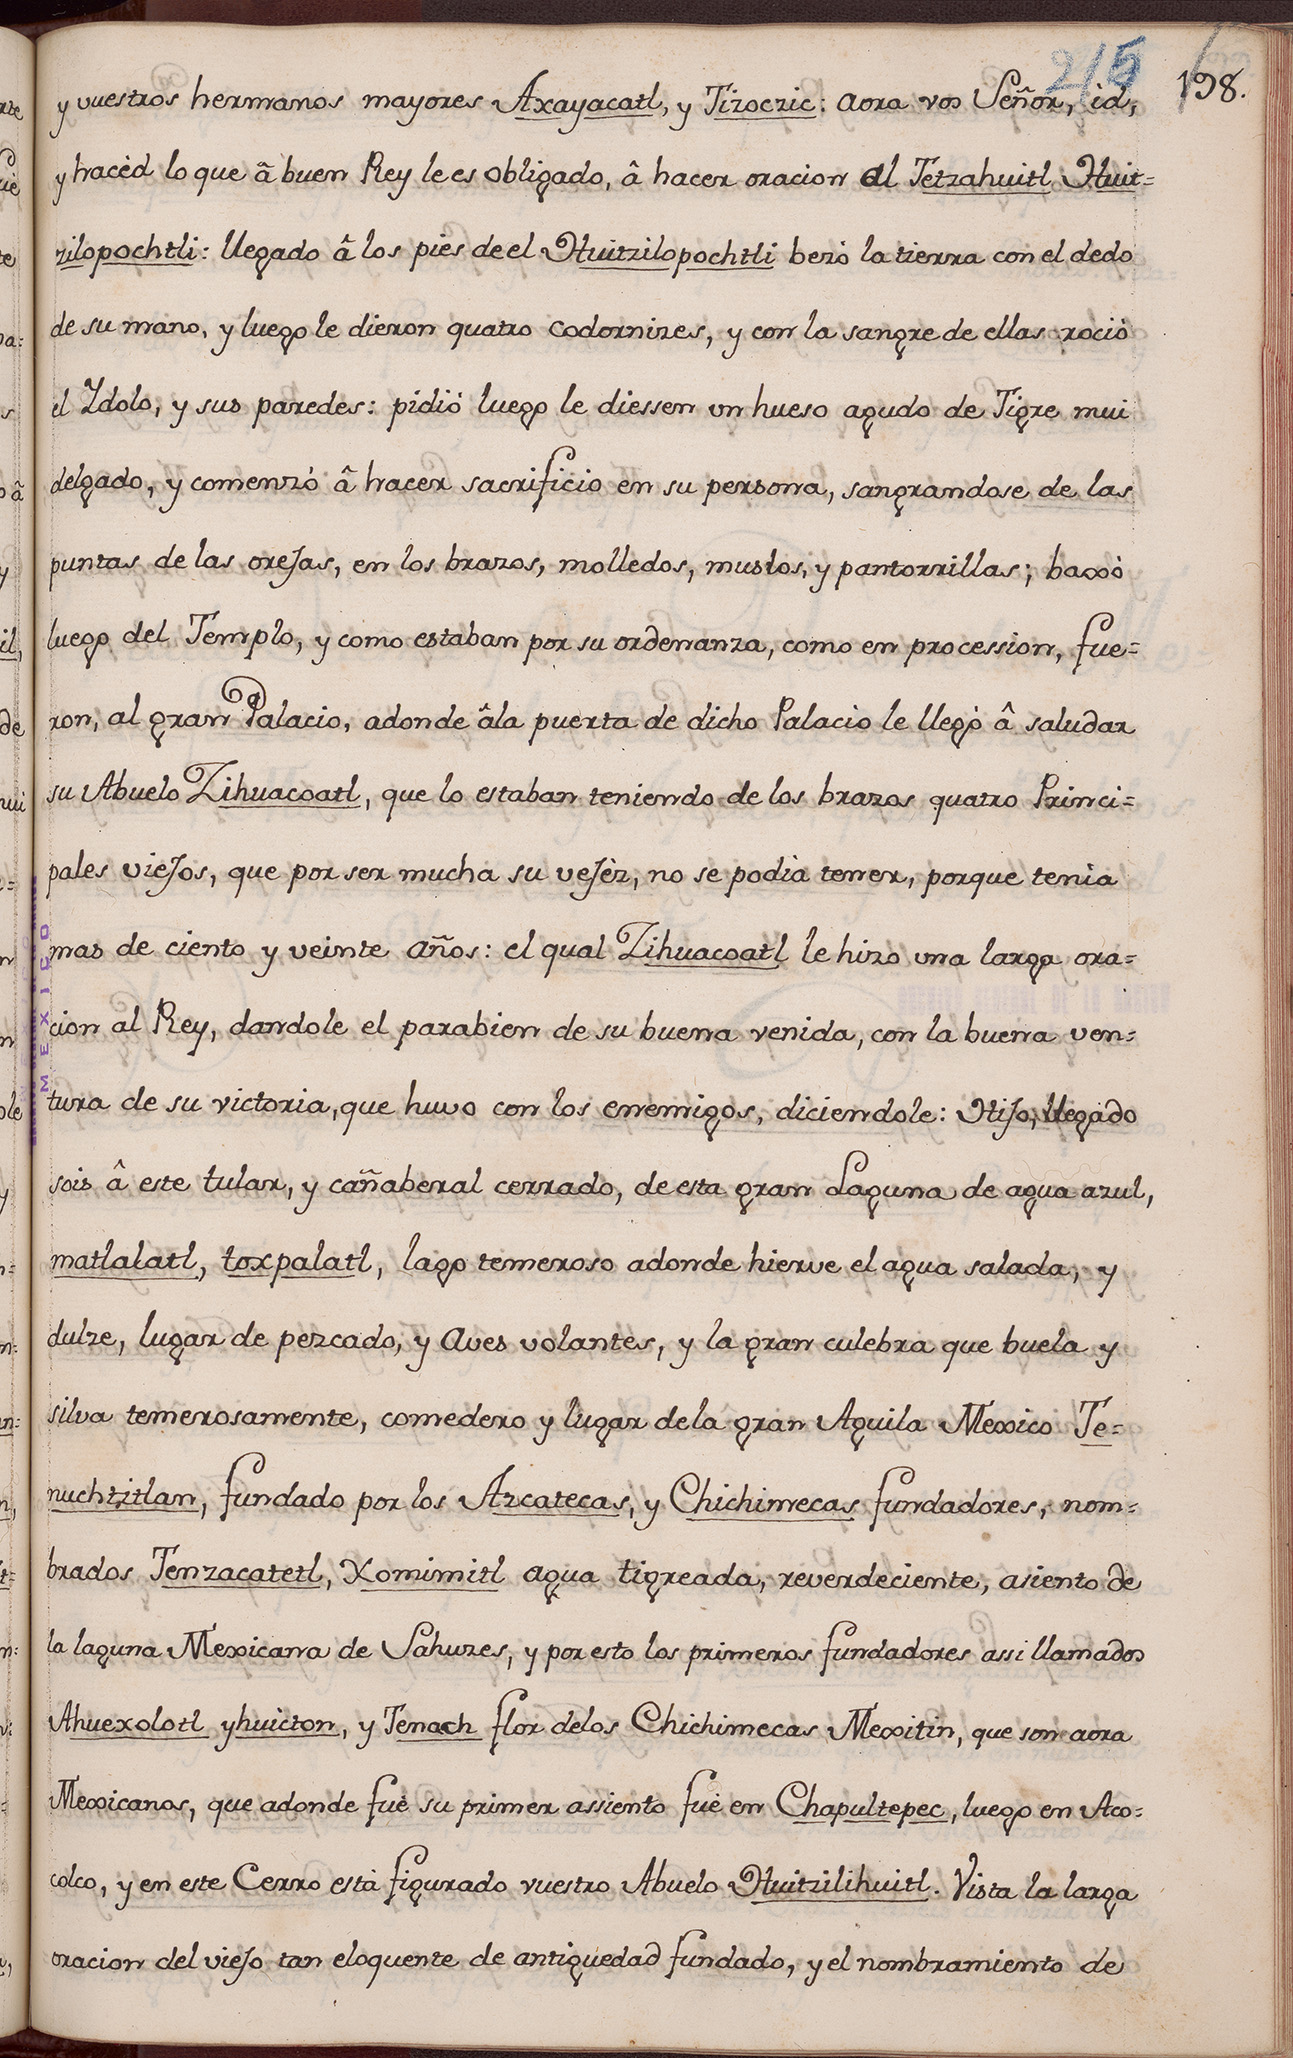 215 198.
y vuestros hermanos mayores Axayacatl, y Tizoczic: aora vos Señor, id,
y hacèd lo que â buen Rey le es obligado, â hacer oracion al Tetzahuitl Huit=
zilopochtli: llegado â los pies de el Huitzilopochtli bezò la tierra con el dedo
de su mano, y luego le dieron quatro codornizes, y con la sangre de ellas rociò
el Ydolo, y sus paredes: pidiò luego le diessen un hueso agudo de Tigre mui
delgado, y comenzò â hacer sacrificio en su persona, sangrandose de las
puntas de las oreJas, en los brazos, molledos, muslos, y pantorrillas; baxò
luego del Templo, y como estaban por su ordenanza, como en procession, fue=
ron, al gran Palacio, adonde âla puerta de dicho Palacio le llegò â saludar
su Abuelo Zihuacoatl, que lo estaban teniendo de los brazos quatro Princi=
pales vieJos, que por ser mucha su veJèz, no se podia tener, porque tenia
mas de ciento y veinte años: el qual Zihuacoatl le hizo una larga ora=
cion al Rey, dandole el parabien de su buena venida, con la buena ven=
tura de su victoria, que huvo con los enemigos, diciendole: HiJo, llegado
sois â este tular, y cañaberal cerrado, de esta gran Laguna de agua azul,
matlalatl, toxpalatl, lago temeroso adonde hierve el agua salada, y
dulze, lugar de pezcado, y Aves volantes, y la gran culebra que buela y
silva temerosamente, comedero y lugar dela gran Aguila Mexico Te=
nuchtzitlan, fundado por los Azcatecas, y Chichimecas fundadores, nom=
brados Tenzacatetl, Xomimitl agua tigreada, reverdeciente, asiento de
la laguna Mexicana de Sahuzes, y por esto los primeros fundadores assi llamados
Ahuexolotl yhuicton, y Tenach flor delos Chichimecas Mexitin, que son aora
Mexicanos, que adonde fuè su primer assiento fuè en Chapultepec, luego en Aco=
colco, y en este Cerro està figurado vuestro Abuelo Huitzilihuitl. Vista la larga
oracion del vieJo tan eloquente de antiguedad fundado, y el nombramiento de
MEXICO